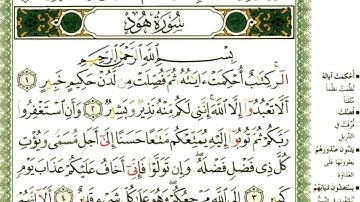 سُورَةُ هُودٍ
بِسْمِ اللَّهِ الرَّحْمَٰنِ الرَّحِيمِ
الٓر ۚ كِتَابٌ أُحْكِمَتْ آيَاتُهُ ثُمَّ فُصِّلَتْ مِن لَّدُنْ حَكِيمٍ خَبِيرٍ ١
أَلَّا تَعْبُدُوا إِلَّا اللَّهَ ۚ إِنَّنِي لَكُم مِّنْهُ نَذِيرٌ وَبَشِيرٌ ٢ وَأَنِ اسْتَغْفِرُوا
رَبَّكُمْ ثُمَّ تُوبُوا إِلَيْهِ يُمَتِّعْكُم مَّتَاعًا حَسَنًا إِلَىٰ أَجَلٍ مُّسَمًّى وَيُؤْتِ
كُلَّ ذِي فَضْلٍ فَضْلَهُ ۖ وَإِن تَوَلَّوْا فَإِنِّي أَخَافُ عَلَيْكُمْ عَذَابَ يَوْمٍ
كَبِيرٍ ٣ إِلَى اللَّهِ مَرْجِعُكُمْ ۖ وَهُوَ عَلَىٰ كُلِّ شَيْءٍ قَدِيرٌ ٤ أَلَا إِنَّهُمْ
أُحْكِمَتْ آيَاتُهُ
فُصِّلَتْ
يَثْنُونَ صُدُورَهُمْ
يَسْتَغْشُونَ ثِيَابَهُمْ